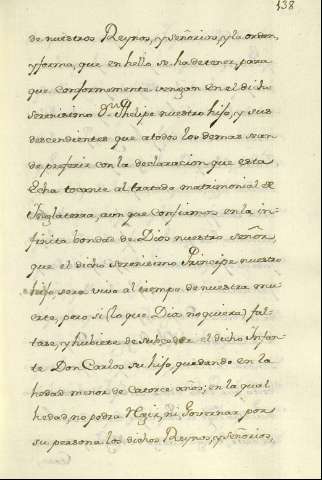 138
de nuestros Reynos, y señorios, y la orden,
y forma, que en hello se ha de tener, para
que conformemente vengan en el dicho
serenisimo Phelipe nuestro hijo, y sus
descendientes que a todos los demas se an
de preferir con la declaracion que esta
echa tocante al tratado matrimonial de
Inglaterra, aun que confiamos en la in-
finita bondad de Dios nuestro señor,
que el dicho serenisimo Principe nuestro
hijo sera vivo al tiempo de nuestra mu-
erte, pero si (lo que Dios no quiera) fal-
tase, y hubiere de subceder el dicho Infan-
te Don Carlos su hijo, quedando en la
hedad menor de catorce años; en la qual
hedad, no podra Regir, ni Governar por
su persona los dichos Reynos, y señorios,